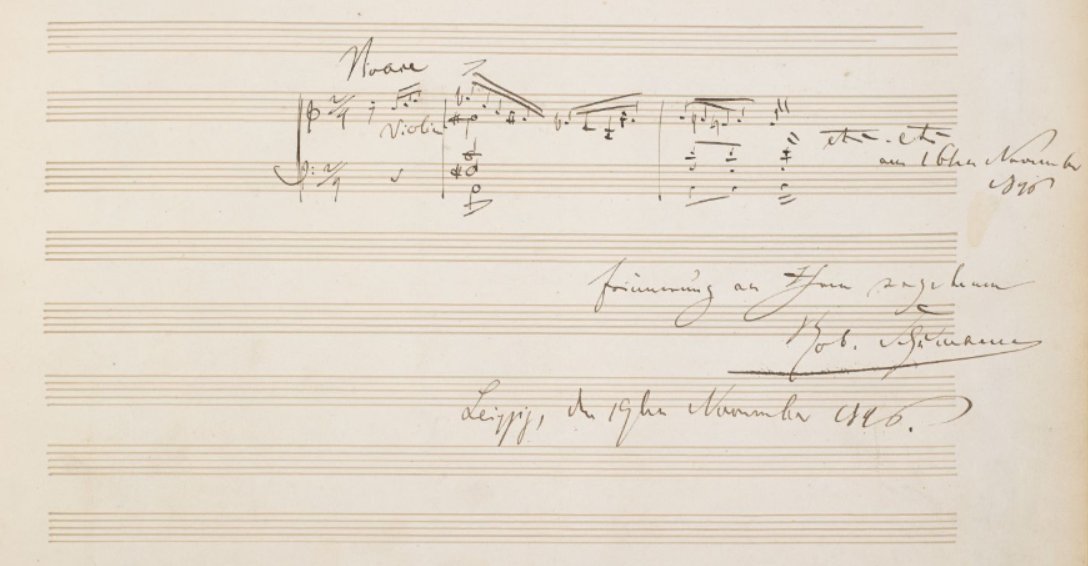 Vivace
2/4
Violin
2/4
etc. etc.
am 16ten November
1846
Erinnerung an Ihren ergebenen
Rob. Schumann
Leipzig, den 19ten November 1846.